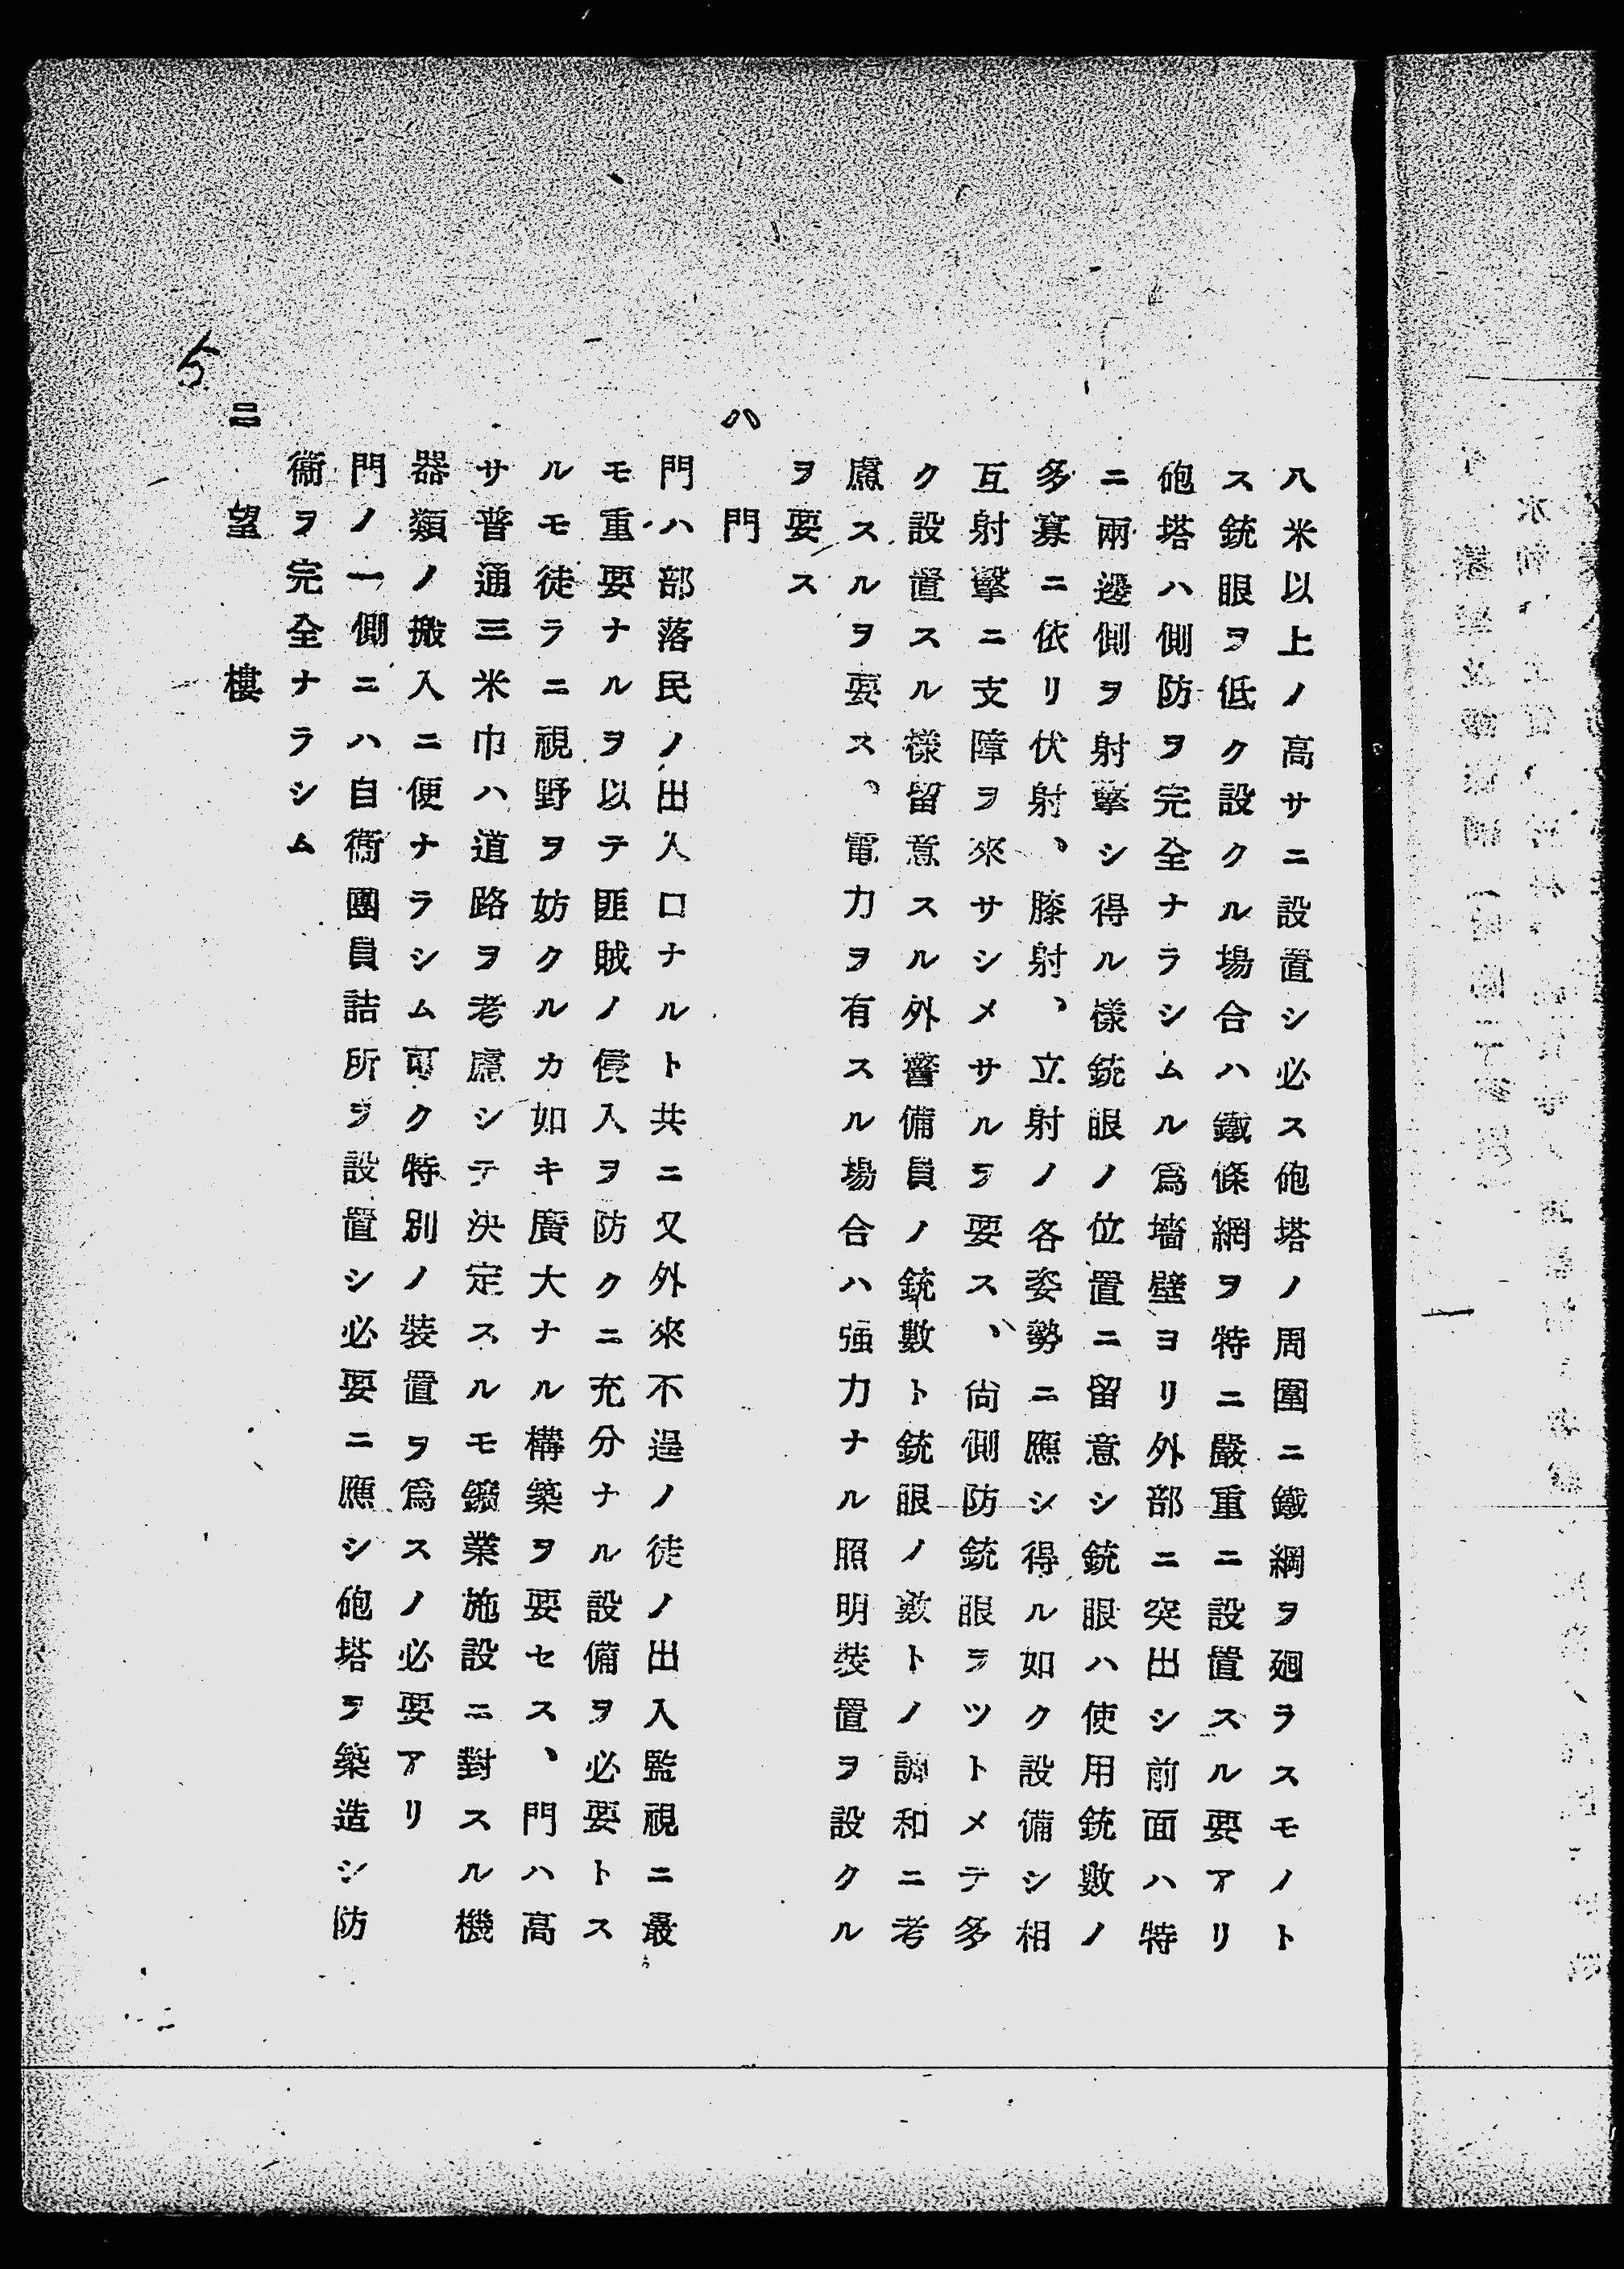 八米以上ノ高サニ設置シ必ス砲塔ノ周圍ニ鐵網ヲ廻ラスモノト
ス銃眼ヲ低ク設クル場合ハ鐵條網ヲ特ニ嚴重ニ設置スル要アリ
砲塔ハ側防ヲ完全ナラシムル爲墻壁ヨリ外部ニ突出シ前面ハ特
ニ兩邊側ヲ射擊シ得ル樣銃眼ノ位置ニ留意シ銃眼ハ使用銃數ノ
多寡ニ依リ伏射、膝射、立射ノ各姿勢ニ應シ得ル如ク設備シ相
互射擊ニ支障ヲ來サシメサルヲ要ス、尙側防銃眼ヲツトメテ多
ク設置スル樣留意スル外警備員ノ銃數ト銃眼ノ數トノ調和ニ考
慮スルヲ要ス。電力ヲ有スル場合ハ强力ナル照明裝置ヲ設クル
ヲ要ス
ハ 門
門ハ部落民ノ出入口ナルト共ニ又外來不逞ノ徒ノ出入監視ニ最
モ重要ナルヲ以テ匪賊ノ侵入ヲ防クニ充分ナル設備ヲ必要トス
ルモ徒ラニ視野ヲ妨クルカ如キ廣大ナル構築ヲ要セス、門ハ高
サ普通三米巾ハ道路ヲ考慮シテ決定スルモ鑛業施設ニ對スル機
器類ノ搬入ニ便ナラシム可ク特別ノ裝置ヲ爲スノ必要アリ
門ノ一側ニハ自衞團員詰所ヲ設置シ必要ニ應シ砲塔ヲ築造シ防
衞ヲ完全ナラシム
ニ 望樓
5